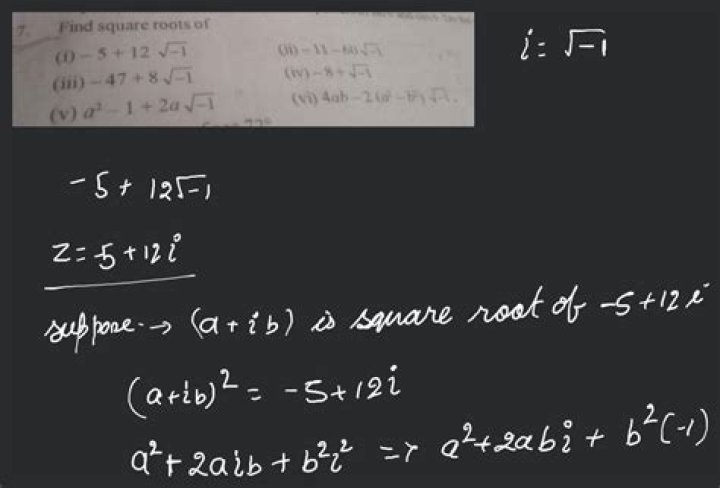 7. Find square roots of
(i) – 5 + 12 √-1
(ii) – 11 – 60 √-1
(iii) – 47 + 8 √-1
(iv) – 8 + √-1
(v) a² – 1 + 2a √-1
(vi) 4ab – 2 (a² – b²) √-1.
i = √-1
-5 + 12√-1
z = -5 + 12i
suppose → (a + ib) is square root of -5+12i
(a+ib)² = -5+12i
a² + 2aib + b²i² => a²+2abi + b²(-1)